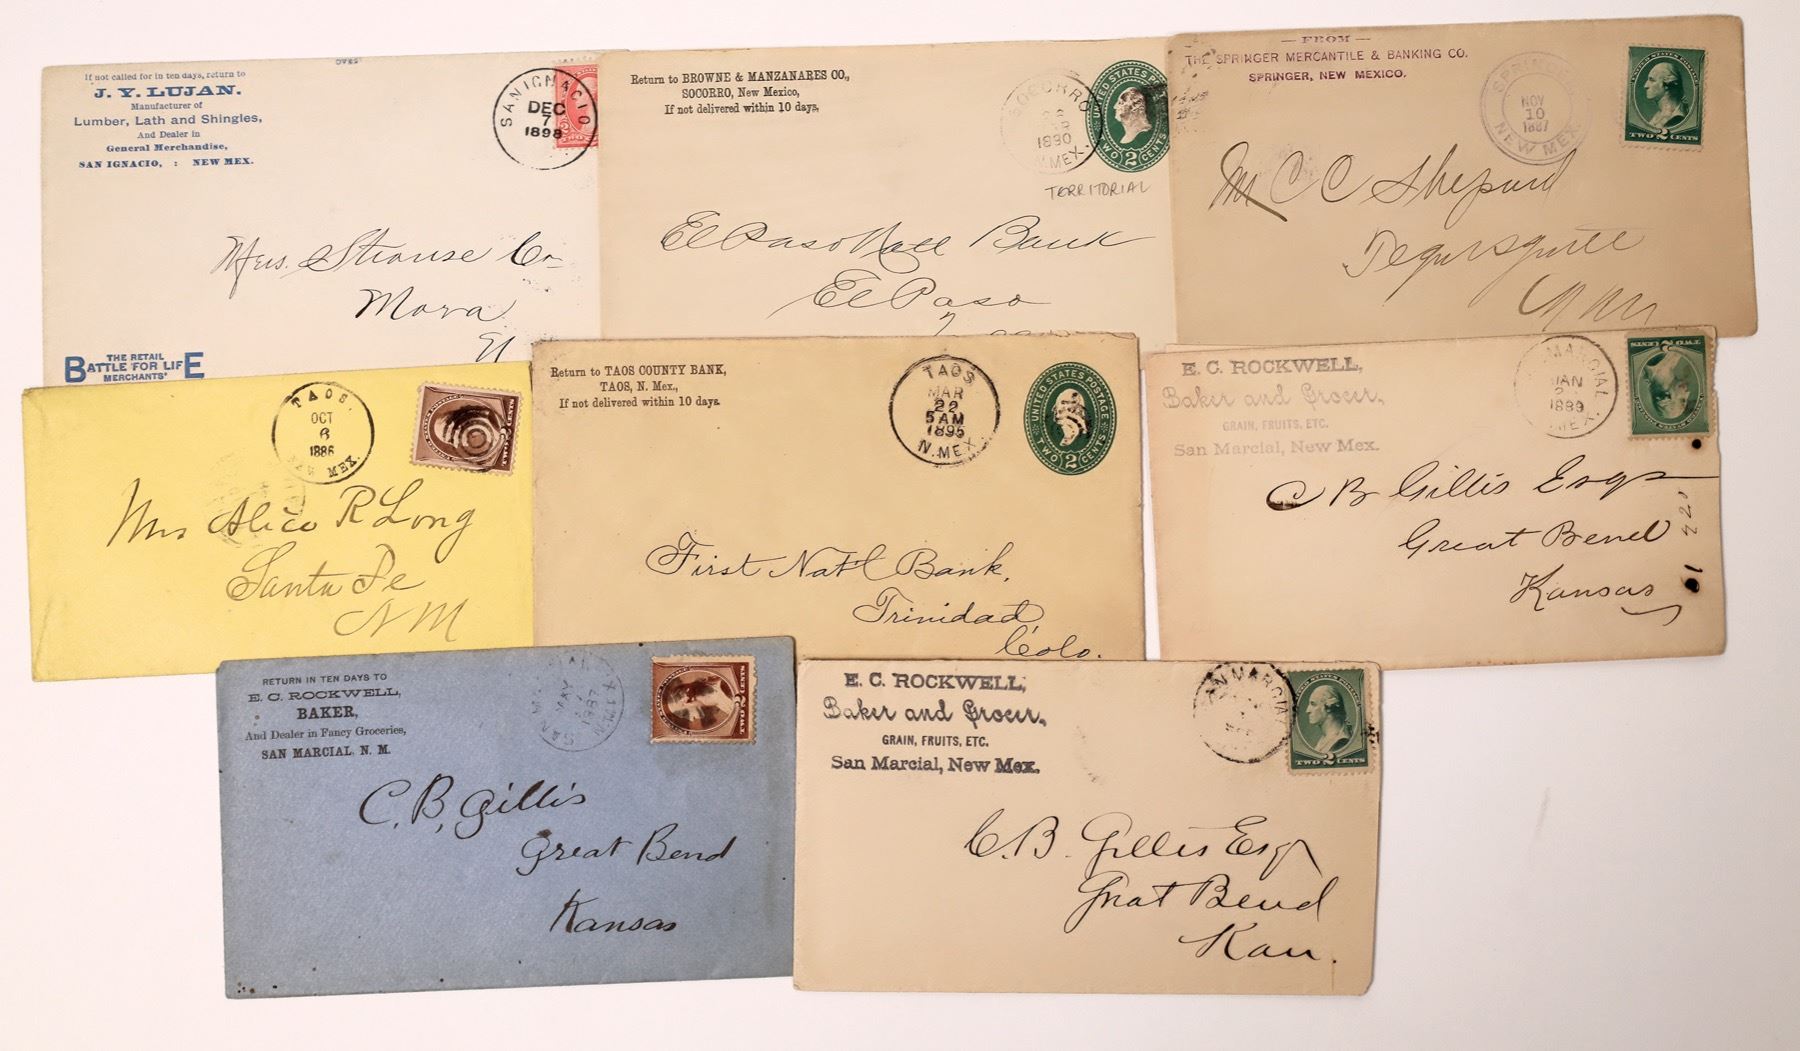 If not called for in ten days, return to
J. Y. LUJAN.
Manufacturer of
Lumber, Lath and Shingles,
And Dealer in
General Merchandise,
SAN IGNACIO, : NEW MEX.
SAN IGNACIO
DEC
7
1898
Strouse Co
Mora
N
THE RETAIL
BATTLE FOR LIFE
MERCHANTS'
Return to BROWNE & MANZANARES CO.,
SOCORRO, New Mexico,
If not delivered within 10 days,
SOCORRO
1890
N. MEX.
UNITED STATES POSTAGE
TWO 2 CENTS
TERRITORIAL
El Paso Natl Bank
El Paso
— FROM —
THE SPRINGER MERCANTILE & BANKING CO.
SPRINGER, NEW MEXICO.
SPRINGER
NOV
10
1887
NEW MEX.
TWO 2 CENTS
Mr C C Shepard
N M
TAOS.
OCT
6
1886
NEW MEX.
2 CENTS
Mrs Alice R Long
Santa Fe
N M
Return to TAOS COUNTY BANK,
TAOS, N. Mex.,
If not delivered within 10 days.
TAOS
MAR
22
5 AM
1895
N. MEX.
UNITED STATES POSTAGE
TWO 2 CENTS
First Nat'l Bank,
Trinidad
Colo.
E. C. ROCKWELL,
Baker and Grocer,
GRAIN, FRUITS, ETC.
San Marcial, New Mex.
MARCIAL
JAN
1889
MEX.
TWO 2 CENTS
C B Gillis Esqr
Great Bend
Kansas
RETURN IN TEN DAYS TO
E. C. ROCKWELL,
BAKER,
And Dealer in Fancy Groceries,
SAN MARCIAL, N. M.
TWO 2 CENTS
C. B. Gillis
Great Bend
Kansas
E. C. ROCKWELL,
Baker and Grocer,
GRAIN, FRUITS, ETC.
San Marcial, New Mex.
SAN MARCIAL
TWO 2 CENTS
C. B. Gillis Esqr
Great Bend
Kan.